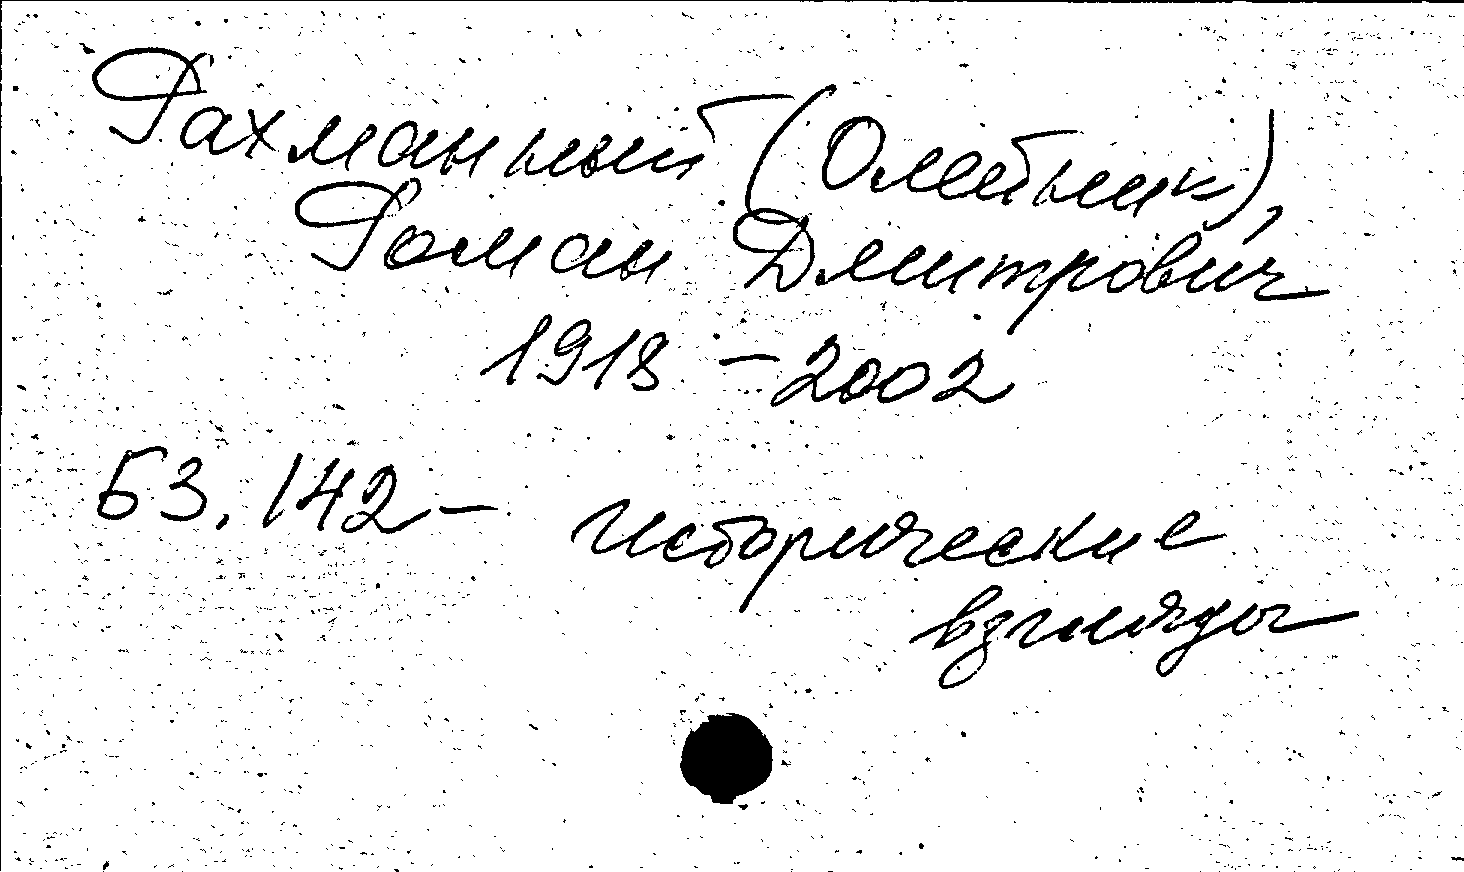 Рахманный (Олейник),
Роман Дмитрович
1918 - 2002
Б3.142 - исторические
взгляды